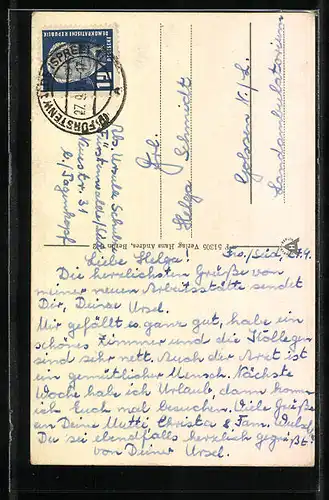 DEUTSCHE
DEMOKRATISCHE REPUBLIK
12
FÜRSTENWALDE (SPREE)
27.9.
Abs. Ursula Schulz
Fürstenwalde/Süd
Neustr. 31
b/Pagenkopf
Frl.
Helga Schmidt
Golssen N/L.
Landambulatorium
P 51305 Verlag Hans Andres, Berlin
Liebe Helga! Fw./Süd, 27.9.
Die herzlichsten Grüße von
meiner neuen Arbeitsstätte sendet
Dir, Deine Ursel.
Mir gefällt es ganz gut, habe ein
schönes Zimmer und die Kollegen
sind sehr nett. Auch der Arzt ist
ein gemütlicher Mensch. Nächste
Woche hab ich Urlaub, dann komm
ich Euch mal besuchen. Viele Grüße
an Deine Mutti, Christa & Fam.
Du sei ebendfalls herzlich gegrüßt
von Deiner Ursel.